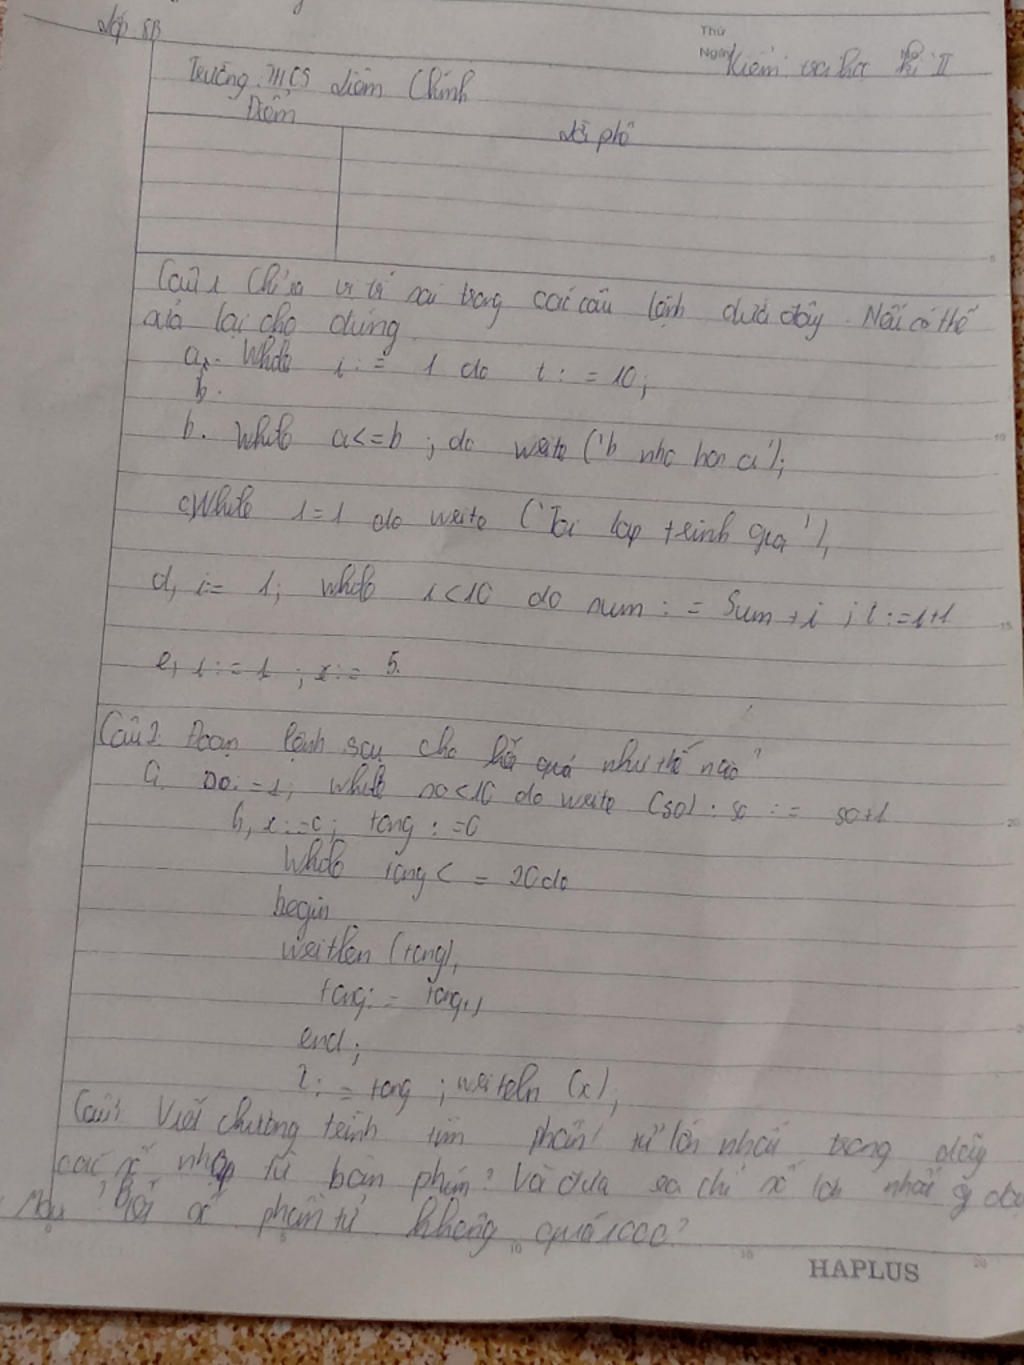 Lớp 8B
Thứ
Ngày
Kiểm tra học kì II
Trường THCS Liêm Chính
Điểm
Lời phê
Câu 1 Chỉ ra vị trí sai trong các câu lệnh dưới đây. Nếu có thể
sửa lại cho đúng
a, While i := 1 do t := 10;
b.
b. While a<=b ; do write ('b nho hon a');
c, While 1=1 do write ('Toi lap trinh gioi');
d, i:= 1; while i<10 do sum := Sum +i ; i :=i+1
e, i := 1 ; x := 5.
Câu 2. Đoạn lệnh sau cho kết quả như thế nào?
a. so:=1; while so<10 do write (so) : so := so+1
b, x:=0; tong :=0
While tong < = 20 do
begin
writeln (tong),
tong: = tong+1
end;
x: = tong ; writeln (x);
Câu 3 Viết chương trình tìm phần tử lớn nhất trong dãy
các số nhập từ bàn phím? Và đưa ra chỉ số lớn nhất ở đây
? Với số phần tử không quá 1000?
5
10
15
20
5
10
15
20
HAPLUS